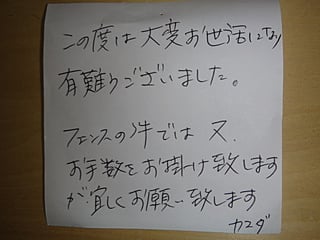 この度は大変お世話になり
有難うございました。
フェンスの件では又、
お手数をお掛け致します
が宜しくお願い致します
カマダ